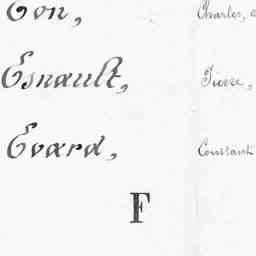 Eon, Charles,
Esnault, Pierre,
Evard, Constant
F